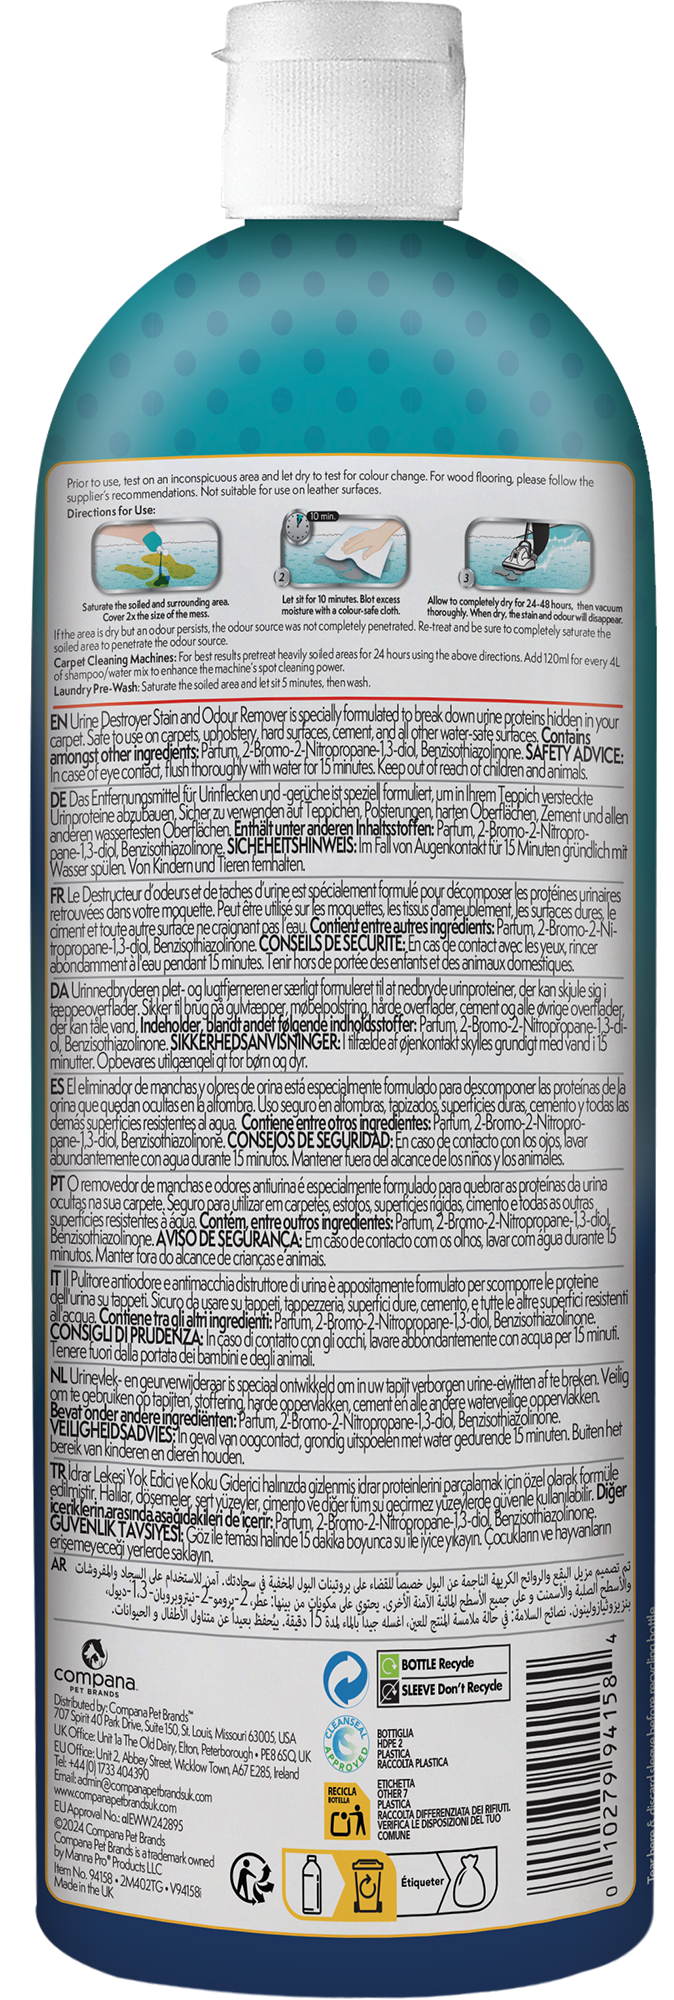 Prior to use, test on an inconspicuous area and let dry to test for colour change. For wood flooring, please follow the
supplier's recommendations. Not suitable for use on leather surfaces.
Directions for Use:
10 min.
2
3
Saturate the soiled and surrounding area.
Cover 2x the size of the mess.
Let sit for 10 minutes. Blot excess
moisture with a colour-safe cloth.
Allow to completely dry for 24-48 hours, then vacuum
thoroughly. When dry, the stain and odour will disappear.
If the area is dry but an odour persists, the odour source was not completely penetrated. Re-treat and be sure to completely saturate the
soiled area to penetrate the odour source.
Carpet Cleaning Machines: For best results pretreat heavily soiled areas for 24 hours using the above directions. Add 120ml for every 4L
of shampoo/water mix to enhance the machine's spot cleaning power.
Laundry Pre-Wash: Saturate the soiled area and let sit 5 minutes, then wash.
EN Urine Destroyer Stain and Odour Remover is specially formulated to break down urine proteins hidden in your
carpet. Safe to use on carpets, upholstery, hard surfaces, cement, and all other water-safe surfaces. Contains
amongst other ingredients: Parfum, 2-Bromo-2-Nitropropane-1,3-diol, Benzisothiazolinone. SAFETY ADVICE:
In case of eye contact, flush thoroughly with water for 15 minutes. Keep out of reach of children and animals.
DE Das Entfernungsmittel für Urinflecken und -gerüche ist speziell formuliert, um in Ihrem Teppich versteckte
Urinproteine abzubauen. Sicher zu verwenden auf Teppichen, Polsterungen, harten Oberflächen, Zement und allen
anderen wasserfesten Oberflächen. Enthält unter anderen Inhaltsstoffen: Parfum, 2-Bromo-2-Nitropro-
pane-1,3-diol, Benzisothiazolinone. SICHEHEITSHINWEIS: Im Fall von Augenkontakt für 15 Minuten gründlich mit
Wasser spülen. Von Kindern und Tieren fernhalten.
FR Le Destructeur d'odeurs et de taches d'urine est spécialement formulé pour décomposer les protéines urinaires
retrouvées dans votre moquette. Peut être utilisé sur les moquettes, les tissus d'ameublement, les surfaces dures, le
ciment et toute autre surface ne craignant pas l'eau. Contient entre autres ingrédients: Parfum, 2-Bromo-2-Ni-
tropropane-1,3-diol, Benzisothiazolinone. CONSEILS DE SECURITE: En cas de contact avec les yeux, rincer
abondamment à l'eau pendant 15 minutes. Tenir hors de portée des enfants et des animaux domestiques.
DA Urinnedbryderen plet- og lugtfjerneren er særligt formuleret til at nedbryde urinproteiner, der kan skjule sig i
tæppeoverflader. Sikker til brug på gulvtæpper, møbelpolstring, hårde overflader, cement og alle øvrige overflader,
der kan tåle vand. Indeholder, blandt andet følgende indholdsstoffer: Parfum, 2-Bromo-2-Nitropropane-1,3-di-
ol, Benzisothiazolinone. SIKKERHEDSANVISNINGER: I tilfælde af øjenkontakt skylles grundigt med vand i 15
minutter. Opbevares utilgængeli gt for børn og dyr.
ES El eliminador de manchas y olores de orina está especialmente formulado para descomponer las proteínas de la
orina que quedan ocultas en la alfombra. Uso seguro en alfombras, tapizados, superficies duras, cemento y todas las
demás superficies resistentes al agua. Contiene entre otros ingredientes: Parfum, 2-Bromo-2-Nitropro-
pane-1,3-diol, Benzisothiazolinone. CONSEJOS DE SEGURIDAD: En caso de contacto con los ojos, lavar
abundantemente con agua durante 15 minutos. Mantener fuera del alcance de los niños y los animales.
PT O removedor de manchas e odores antiurina é especialmente formulado para quebrar as proteínas da urina
ocultas na sua carpete. Seguro para utilizar em carpetes, estofos, superfícies rígidas, cimento e todas as outras
superfícies resistentes à água. Contém, entre outros ingredientes: Parfum, 2-Bromo-2-Nitropropane-1,3-diol,
Benzisothiazolinone. AVISO DE SEGURANÇA: Em caso de contacto com os olhos, lavar com água durante 15
minutos. Manter fora do alcance de crianças e animais.
IT Il Pulitore antiodore e antimacchia distruttore di urina è appositamente formulato per scomporre le proteine
dell'urina su tappeti. Sicuro da usare su tappeti, tappezzeria, superfici dure, cemento, e tutte le altre superfici resistenti
all'acqua. Contiene tra gli altri ingredienti: Parfum, 2-Bromo-2-Nitropropane-1,3-diol, Benzisothiazolinone.
CONSIGLI DI PRUDENZA: In caso di contatto con gli occhi, lavare abbondantemente con acqua per 15 minuti.
Tenere fuori dalla portata dei bambini e degli animali.
NL Urinevlek- en geurverwijderaar is speciaal ontwikkeld om in uw tapijt verborgen urine-eiwitten af te breken. Veilig
om te gebruiken op tapijten, stoffering, harde oppervlakken, cement en alle andere waterveilige oppervlakken.
Bevat onder andere ingrediënten: Parfum, 2-Bromo-2-Nitropropane-1,3-diol, Benzisothiazolinone.
VEILIGHEIDSADVIES: In geval van oogcontact, grondig uitspoelen met water gedurende 15 minuten. Buiten het
bereik van kinderen en dieren houden.
TR İdrar Lekesi Yok Edici ve Koku Giderici halınızda gizlenmiş idrar proteinlerini parçalamak için özel olarak formüle
edilmiştir. Halılar, döşemeler, sert yüzeyler, çimento ve diğer tüm su geçirmez yüzeylerde güvenle kullanılabilir. Diğer
içeriklerin arasında aşağıdakileri de içerir: Parfum, 2-Bromo-2-Nitropropane-1,3-diol, Benzisothiazolinone.
GÜVENLİK TAVSİYESİ: Göz ile teması halinde 15 dakika boyunca su ile iyice yıkayın. Çocukların ve hayvanların
erişemeyeceği yerlerde saklayın.
AR تم تصميم مزيل البقع والروائح الكريهة الناجمة عن البول خصيصاً للقضاء على بروتينات البول المخفية في سجادتك. آمن للاستخدام على السجاد والمفروشات
والأسطح الصلبة والأسمنت و على جميع الأسطح المائية الآمنة الأخرى. يحتوي على مكونات من بينها: عطر، 2-برومو-2-نيتروبروبان-1،3-ديول،
بنزيزوثيازولينون. نصائح السلامة: في حالة ملامسة المنتج للعين، اغسله جيداً بالماء لمدة 15 دقيقة. يُحفظ بعيداً عن متناول الأطفال و الحيوانات.
compana
PET BRANDS
Distributed by: Compana Pet Brands™
707 Spirit 40 Park Drive, Suite 150, St. Louis, Missouri 63005, USA
UK Office: Unit 1a The Old Dairy, Elton, Peterborough • PE8 6SQ, UK
EU Office: Unit 2, Abbey Street, Wicklow Town, A67 E285, Ireland
Tel: +44 (0) 1733 404390
Email: admin@companapetbrandsuk.com
www.companapetbrandsuk.com
EU Approval No.: αIEWW242895
©2024 Compana Pet Brands
Compana Pet Brands is a trademark owned
by Manna Pro® Products LLC
Item No. 94158 • 2M402TG • V94158i
Made in the UK
BOTTLE Recycle
SLEEVE Don't Recycle
CLEANSEAL
APPROVED
BOTTIGLIA
HDPE 2
PLASTICA
RACCOLTA PLASTICA
RECICLA
BOTELLA
ETICHETTA
OTHER 7
PLASTICA
RACCOLTA DIFFERENZIATA DEI RIFIUTI.
VERIFICA LE DISPOSIZIONI DEL TUO
COMUNE
Étiqueter
0 10279 94158 4
Tear here & discard sleeve before recycling bottle